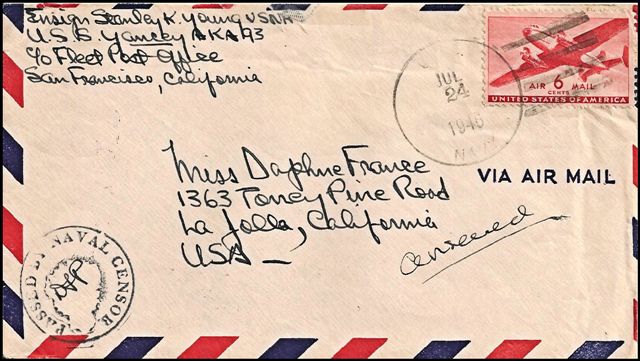 Ensign Stanley K. Young USNR
U.S.S. Yancey AKA 93
c/o Fleet Post Office
San Francisco, California
JUL
24
1945
AIR 6 MAIL
CENTS
UNITED STATES OF AMERICA
VIA AIR MAIL
Miss Daphne France
1363 Torrey Pine Road
La Jolla, California
USA —
answered
PASSED BY NAVAL CENSOR